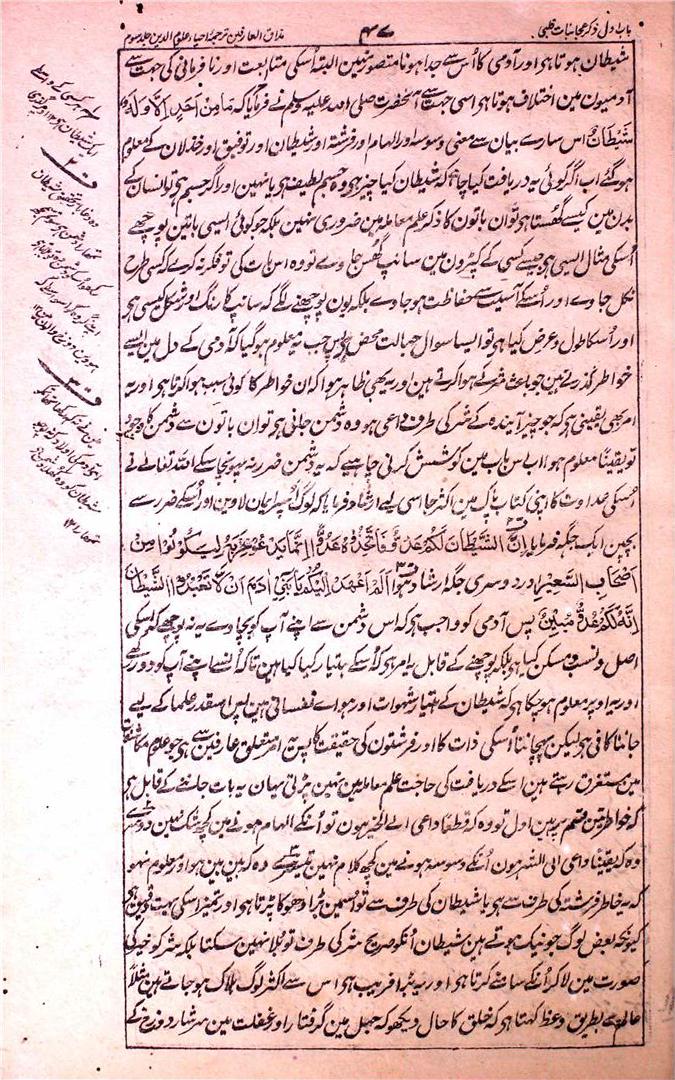 باب اول ذکر عجائبات قلبی
۴۷
مذاق العارفین ترجمہ احیاء علوم الدین جلد سوم
شیطان ہوتا ہی اور آدمی کا اُس سے جدا ہونا متصور نہین البتہ اُسکی متابعت اور نافرمانی کی جہت سے
آدمیون مین اختلاف ہوتا ہی اسی جہت سے آنحضرت صلی اللہ علیہ وسلم نے فرمایا کہ مَا مِنْ اَحَدٍ اِلَّا وَلَهٗ
شَيْطَانٌ اس سارے بیان سے معنی وسوسہ اور الہام اور فرشتہ اور شیطان اور توفیق اور خذلان کے معلوم
ہو گئے اب اگر کوئی یہ دریافت کیا چاہے کہ شیطان کیا چیز ہی وہ جسم لطیف ہی یا نہین اور اگر جسم ہی تو انسان کے
بدن مین کیسے گھستا ہی تو ان باتون کا ذکر علم معاملہ مین ضروری نہین بلکہ جو کوئی ایسی باتین پوچھے
اُسکی مثال ایسی ہی جیسے کسی کے کپڑون مین سانپ گھس جاوے تو وہ اس بات کی تو فکر نہ کرے کہ کسی طرح
نکل جاوے اور اُسکے آسیب سے حفاظت ہو جاوے بلکہ یون پوچھنے لگے کہ سانپ کا رنگ اور شکل کیسی ہی
اور اُسکا طول و عرض کیا ہی تو ایسا سوال جہالت محض ہی پس جب یہ معلوم ہو گیا کہ آدمی کے دل مین ایسے
خواطر گذرتے ہین جو باعث شر کے ہوا کرتے ہین اور یہ بھی ظاہر ہوا کہ ان خواطر کا کوئی سبب ہوا کرتا ہی اور یہ
امر بھی یقینی ہی کہ جو چیز آیندہ کے شر کی طرف داعی ہو وہ دشمن جانی ہی تو ان باتون سے دشمن کا وجود
تو یقیناً معلوم ہوا اب اس باب مین کوشش کرنی چاہیے کہ یہ دشمن ضرر نہ پہونچا سکے اللہ تعالے نے
اُسکی عداوت کا اپنی کتاب پاک مین اکثر جا اسی لیے ارشاد فرمایا کہ لوگ اُسپر ایمان لاوین اور اُسکے ضرر سے
بچین ایک جگہ فرمایا اِنَّ الشَّيْطَانَ لَكُمْ عَدُوٌّ فَاتَّخِذُوْهُ عَدُوًّا اِنَّمَا يَدْعُوْ حِزْبَهٗ لِيَكُوْنُوْا مِنْ
اَصْحَابِ السَّعِيْرِ اور دوسری جگہ ارشاد ہوا اَلَمْ اَعْهَدْ اِلَيْكُمْ يَا بَنِيْ اٰدَمَ اَنْ لَا تَعْبُدُوا الشَّيْطَانَ
اِنَّهٗ لَكُمْ عَدُوٌّ مُّبِيْنٌ پس آدمی کو واجب ہی کہ اس دشمن سے اپنے آپ کو بچاوے یہ نہ پوچھے کہ اسکی
اصل و نسب و مسکن کیا ہی بلکہ پوچھنے کے قابل یہ امر ہی کہ اُسکے ہتیار کیا کیا ہین تاکہ اُنسے اپنے آپ کو دور رکھے
اور یہ اوپر معلوم ہو چکا ہی کہ شیطان کے ہتیار شہوات اور ہواے نفسانی ہین پس اسقدر علما کے لیے
جاننا کافی ہی لیکن پہچاننا اُسکی ذات کا اور فرشتون کی حقیقت کا پس یہ امر متعلق عارفین سے ہی جو علوم مکاشفہ
مین مستغرق رہتے ہین اسکے دریافت کی حاجت علم معاملہ مین نہین پڑتی یہان یہ بات جاننے کے قابل ہی
کہ خواطر تین قسم ہین اول تو وہ کہ قطعاً داعی الے الخیر ہون تو اُنکے الہام ہونے مین کچھ شک نہین دوسرے
وہ کہ یقیناً داعی الی الشر ہون اُنکے وسوسہ ہونے مین کچھ کلام نہین تیسرے وہ کہ بین بین ہو اور معلوم نہو
کہ یہ خاطر فرشتہ کی طرف سے ہی یا شیطان کی طرف سے تو اُسمین بڑا دھوکا پڑتا ہی اور تمیز اسکی بہت دقیق ہی
کیونکہ بعض لوگ جو نیک ہوتے ہین شیطان اُنکو صریح شر کی طرف تو بلا نہین سکتا بلکہ شر کو خیر کی
صورت مین لا کر اُنکے سامنے کرتا ہی اور یہ بڑا فریب ہی اس سے اکثر لوگ ہلاک ہو جاتے ہین مثلاً
عالم سے بطریق وعظ کہتا ہی کہ خلق کا حال دیکھو کہ جہل مین گرفتار اور غفلت مین سرشار دوزخ کے